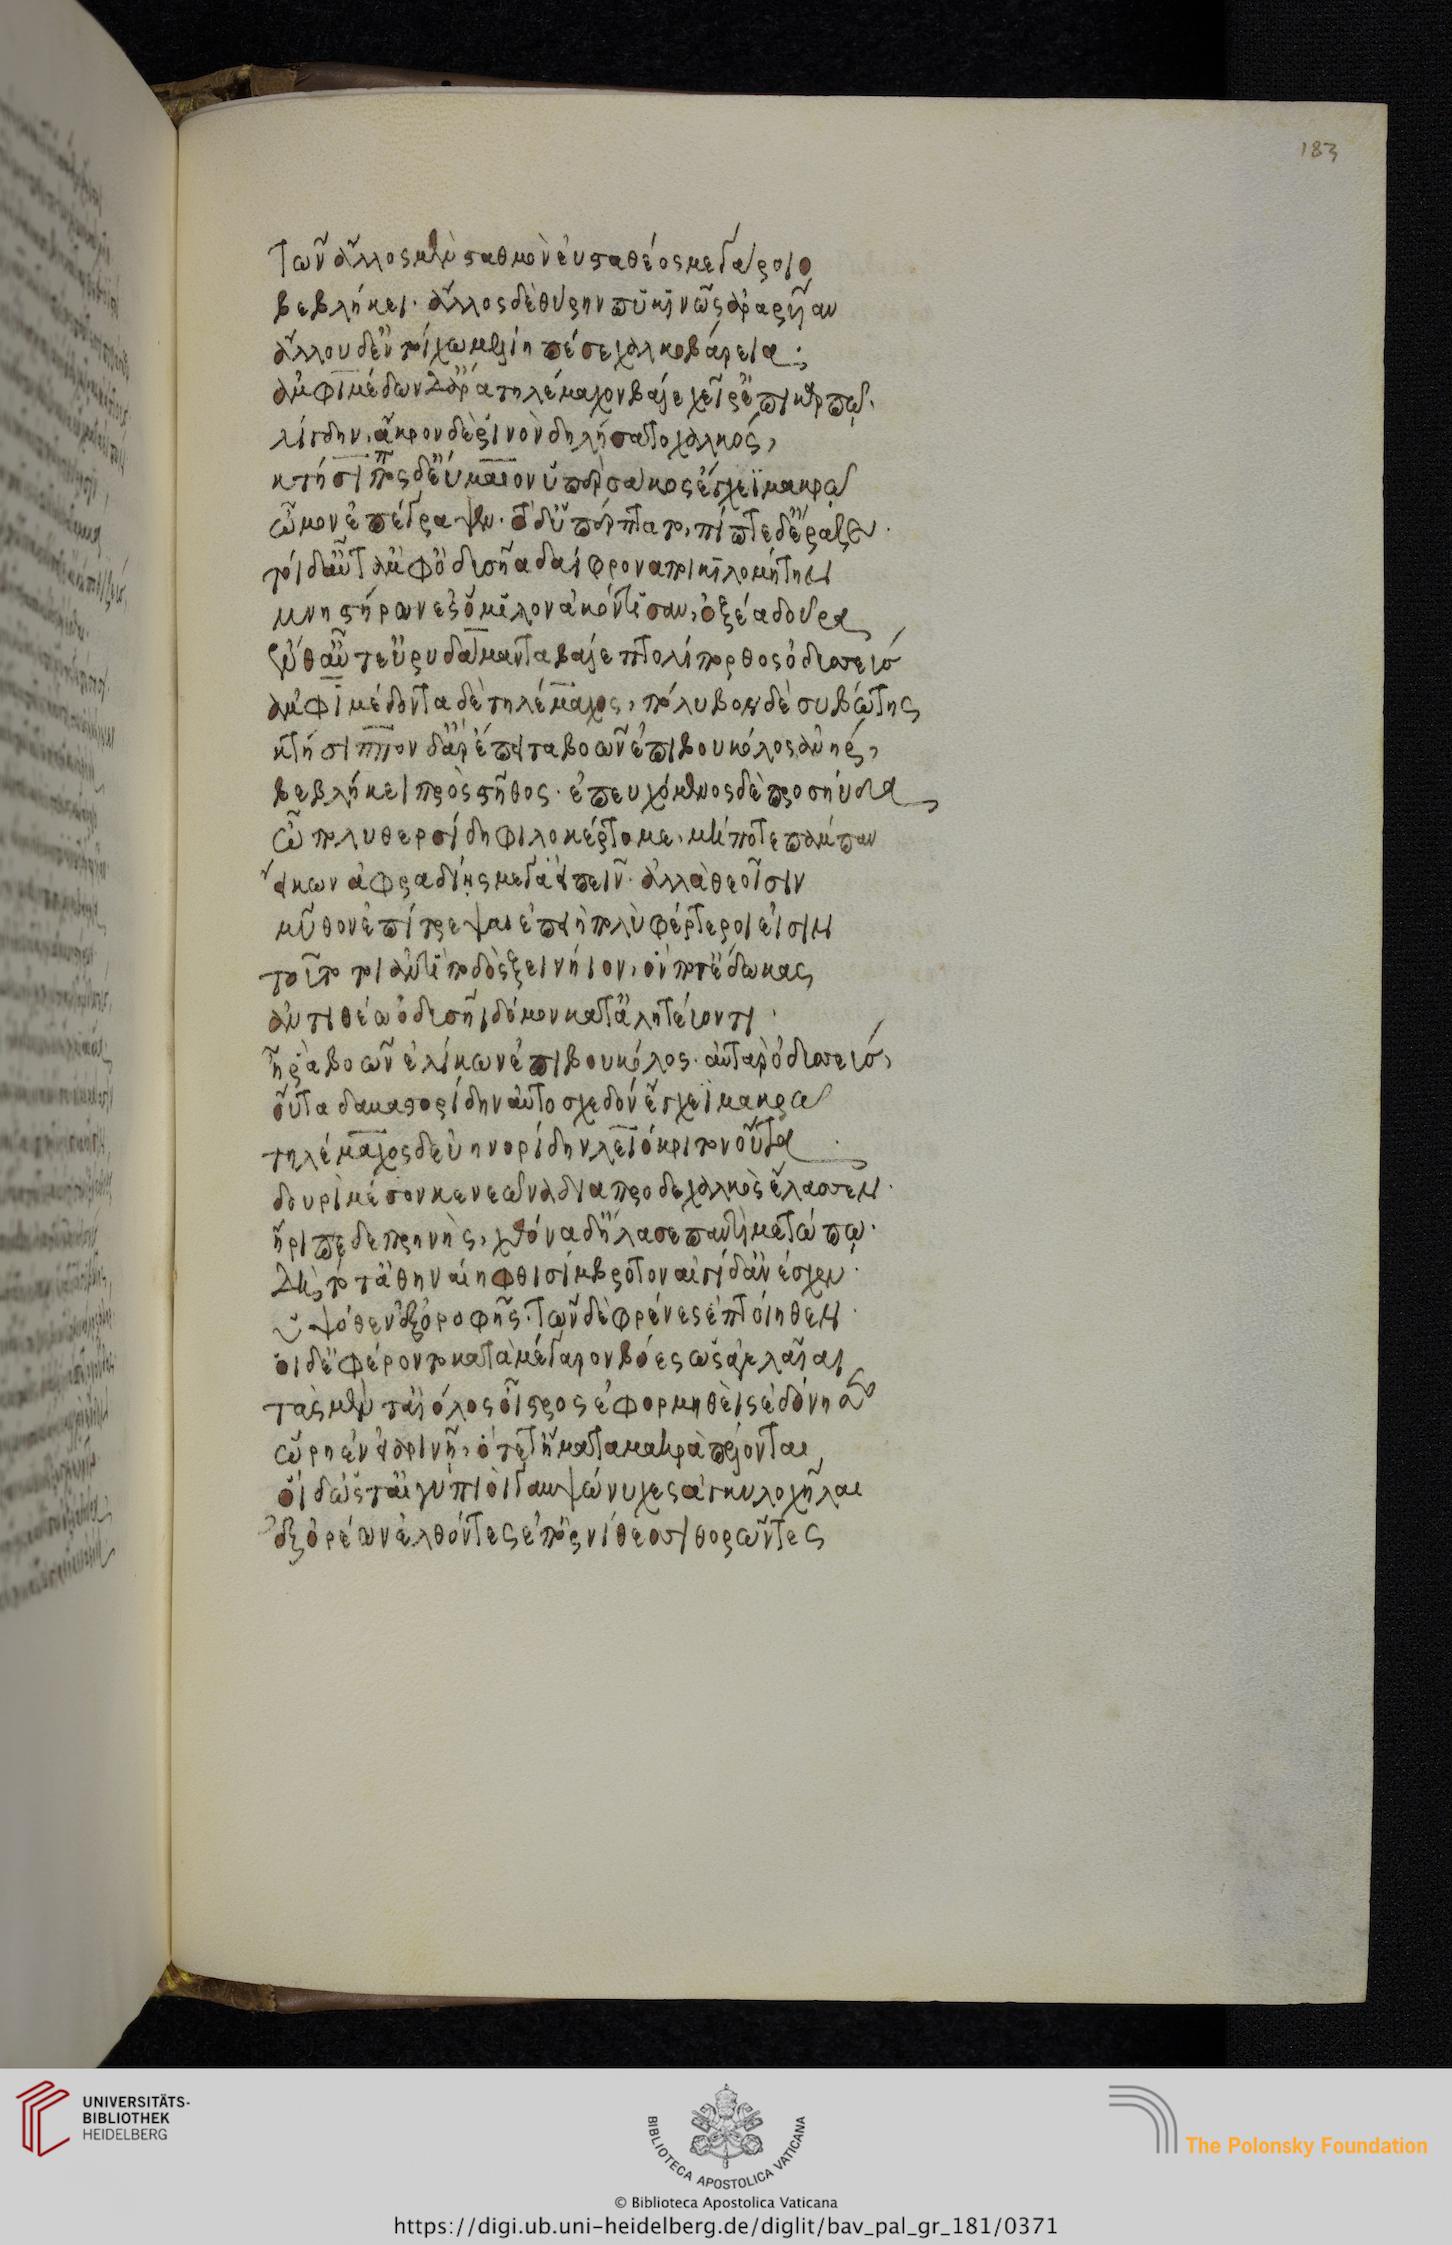 183
τῶν ἄλλος μὲν σταθμὸν ἐυσταθέος μεγάροιο
βεβλήκει· ἄλλος δὲ θύρην πυκινῶς ἀραρυῖαν
ἄλλου δ' ἐν τοίχω μελίη πέσε χαλκοβάρεια·
ἀμφιμέδων δ' ἄρα τηλέμαχον βάλε χεῖρ' ἐπὶ καρπῷ·
λίγδην, ἄκρον δὲ ῥινὸν δηλήσατο χαλκός,
κτήσιππος δ' εὔμαιον ὑπὲρ σάκος ἔγχεϊ μακρῷ
ὦμον ἐπέγραψεν· τὸ δ' ὑπέρπτατο, πίπτε δ' ἔραζε·
τοὶ δ' αὖτ' ἀμφ' ὀδυσῆα δαίφρονα ποικιλομήτην
μνηστήρων ἐς ὅμιλον ἀκόντισαν, ὀξέα δοῦρα
ἔνθ' αὖτ' εὐρυδάμαντα βάλε πτολίπορθος ὀδυσσεύς
ἀμφιμέδοντα δὲ τηλέμαχος, πόλυβον δὲ συβώτης
κτήσιππον δ' ἄρ' ἔπειτα βοῶν ἐπὶ βουκόλος ἀνήρ,
βεβλήκει πρὸς στῆθος· ἐπευχόμενος δὲ προσηύδα
ὦ πολυθερσίδη φιλοκέρτομε, μήποτε πάμπαν
εἴκων ἀφραδίης μέγα εἰπεῖν· ἀλλὰ θεοῖσιν
μῦθον ἐπίτρεψαι ἐπειὴ πολὺ φέρτεροι εἰσὶν
τοῦτο τοι ἀντὶ ποδὸς ξεινήιον, ὅν ποτ' ἔδωκας
ἀντιθέω ὀδυσῆι δόμον κατ' ἀλητεύοντι·
ἦ ῥα βοῶν ἑλίκων ἐπὶ βουκόλος· αὐτὰρ ὀδυσσεύς,
οὖτα δαμαστορίδην αὐτοσχεδὸν ἔγχεϊ μακρῷ
τηλέμαχος δ' εὐηνορίδην λειόκριτον οὖτα
δουρὶ μέσον κενεῶνα διαπρο δε χαλκὸς ἔλασσεν·
ἤριπε δε πρηνὴς, χθόνα δ' ἤλασε παντὶ μετώπῳ·
δὴ τότ' ἀθηναίη φθισίμβροτον αἰγίδ' ἀνέσχεν·
ὑψόθεν ἐξ ὀροφῆς· τῶν δὲ φρένες ἐπτόιηθεν·
οἱ δ' ἐφέροντο κατὰ μέγαρον βόες ὣς ἀγελαῖαι
τὰς μέν τ' αἰόλος οἶστρος ἐφορμηθεὶς ἐδόνησεν
ὥρη ἐν εἰαρινῇ, ὅτε τ' ἤματα μακρὰ πέλονται
οἱ δ' ὥς τ' αἰγυπιοὶ γαμψώνυχες ἀγκυλοχῆλαι
ἐξ ὀρέων ἐλθόντες ἐπ' ὀρνίθεσσι θορῶντες
UNIVERSITÄTS-
BIBLIOTHEK
HEIDELBERG
BIBLIOTECA APOSTOLICA VATICANA
The Polonsky Foundation
© Biblioteca Apostolica Vaticana
https://digi.ub.uni-heidelberg.de/diglit/bav_pal_gr_181/0371